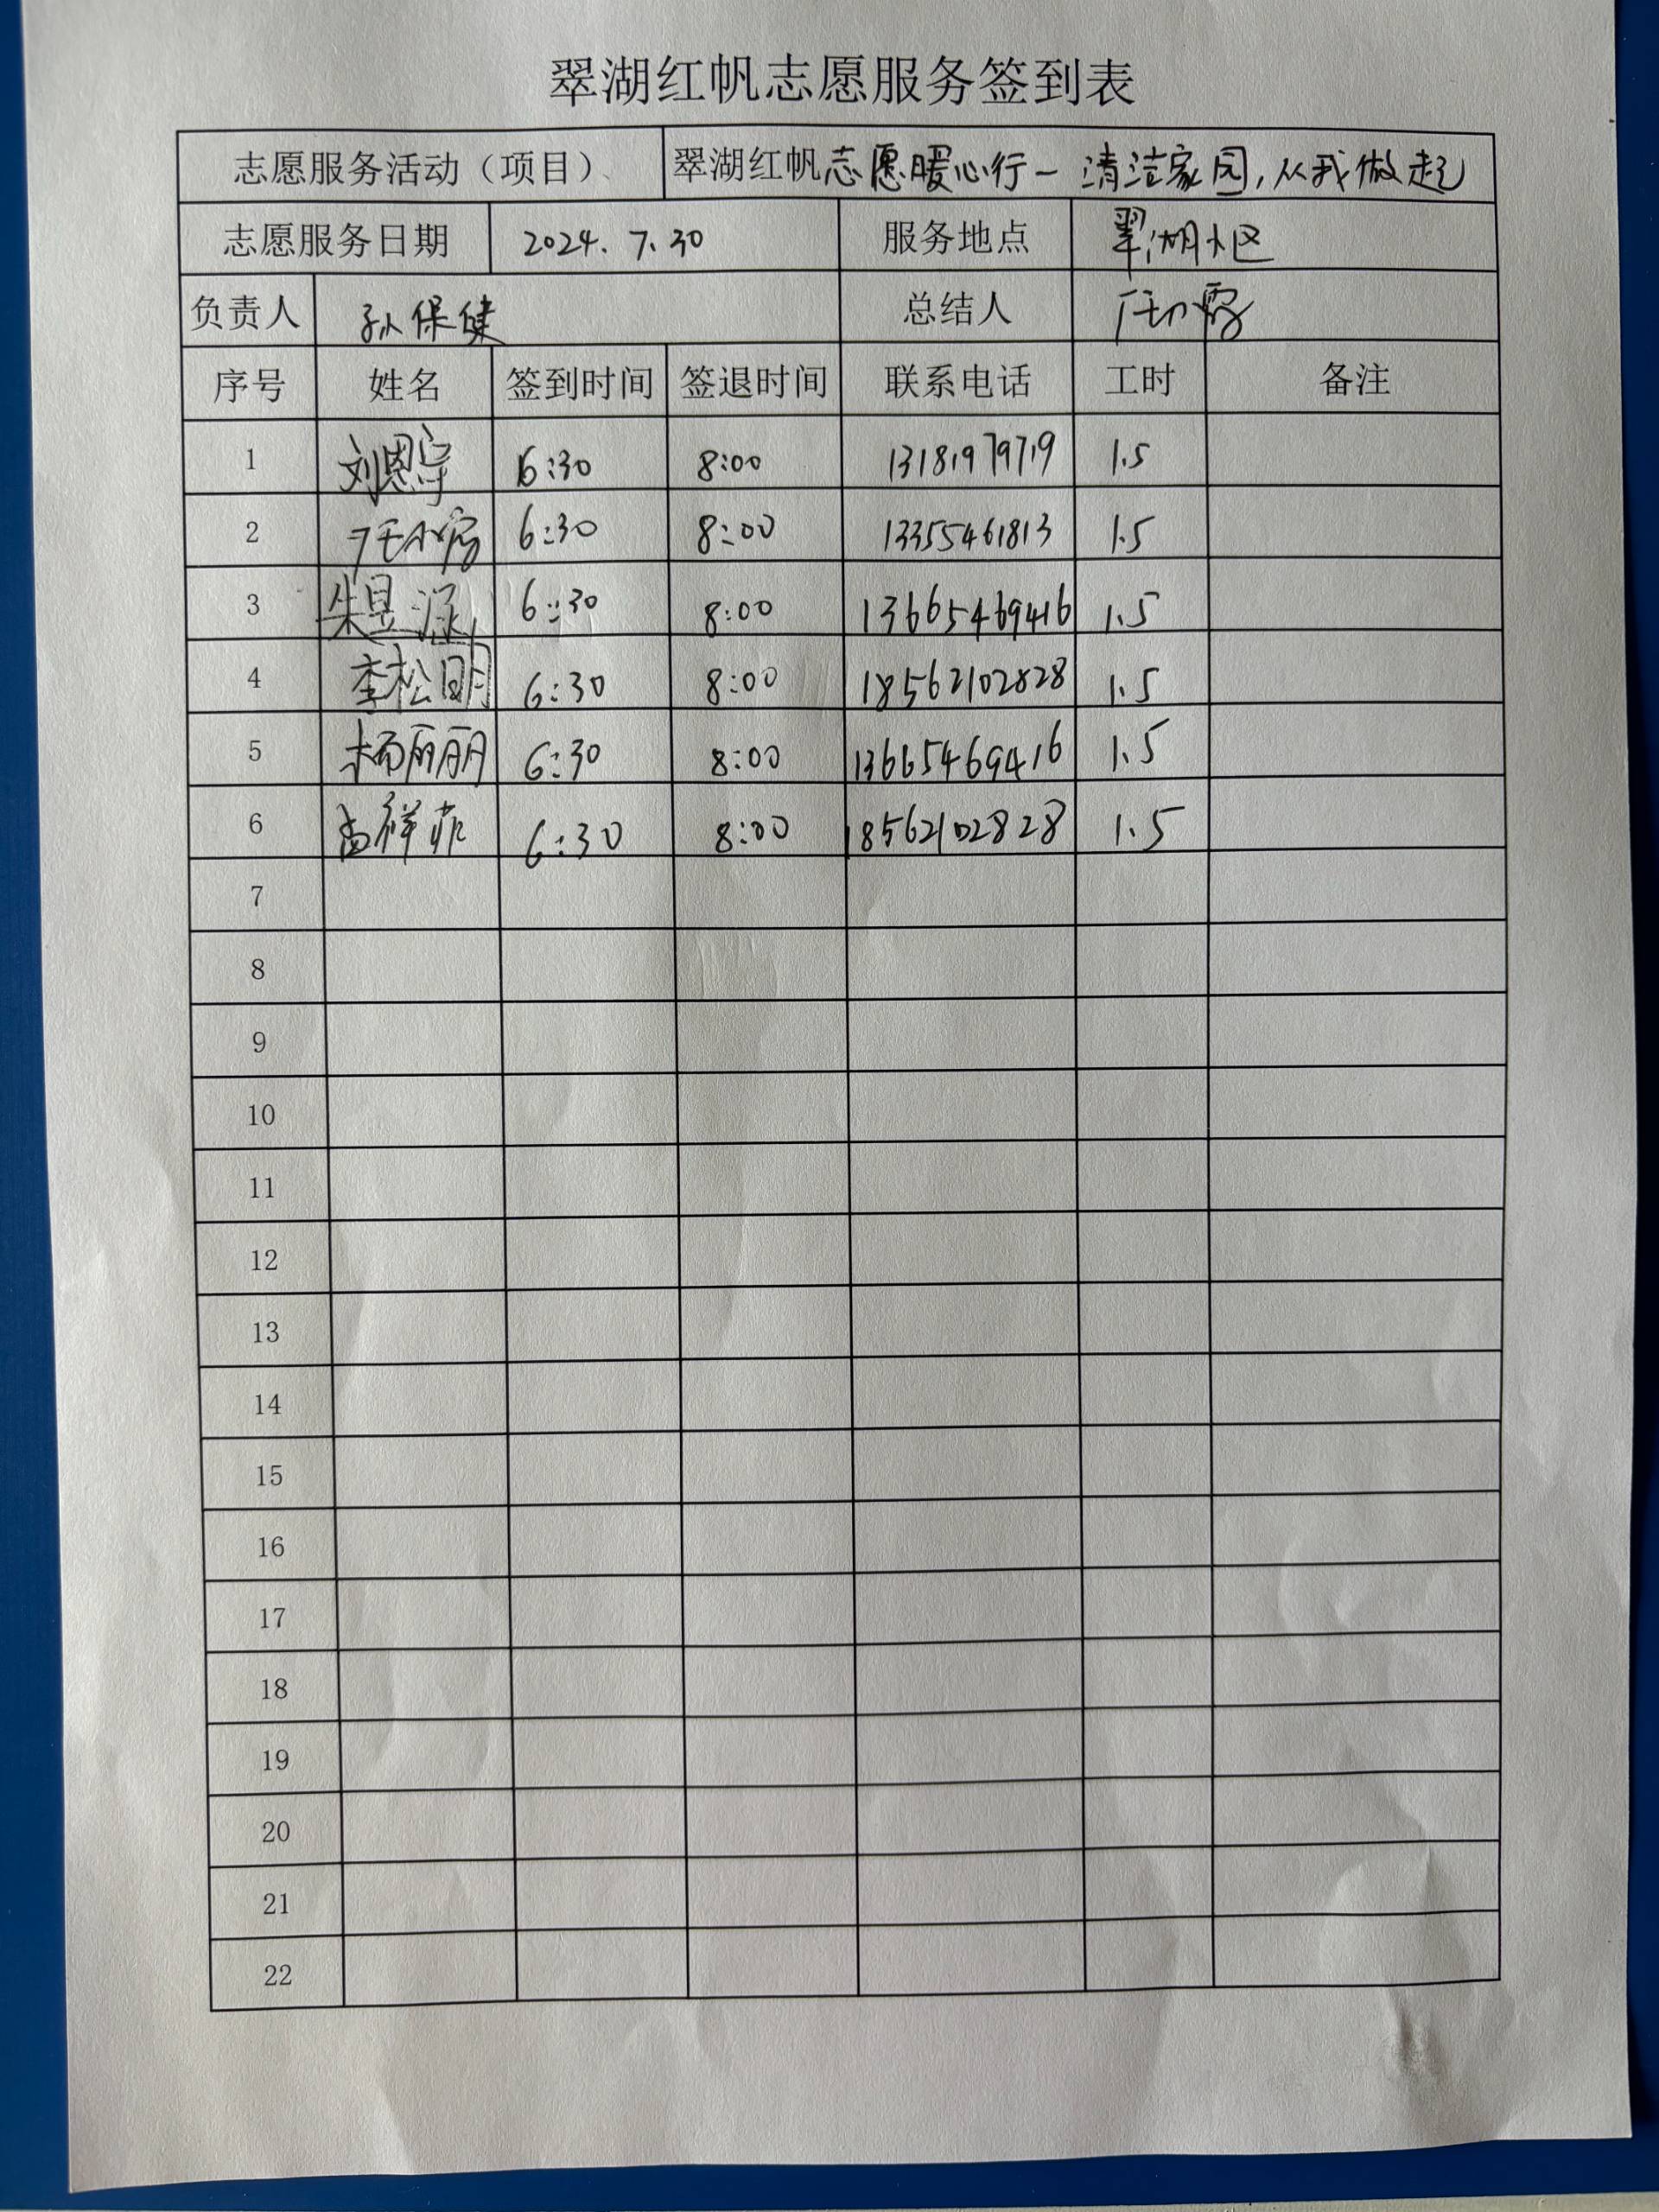 翠湖红帆志愿服务签到表
志愿服务活动（项目） 翠湖红帆志愿暖心行一清洁家园,从我做起
志愿服务日期 2024.7.30 服务地点 翠湖小区
负责人 孙保健 总结人
序号 姓名 签到时间 签退时间 联系电话 工时 备注
1 刘恩宇 6:30 8:00 13181979719 1.5
2 6:30 8:00 13355461813 1.5
3 朱昱涵 6:30 8:00 13665469416 1.5
4 李松明 6:30 8:00 18562102828 1.5
5 杨丽丽 6:30 8:00 13665469416 1.5
6 孟祥菲 6:30 8:00 18562102828 1.5
7
8
9
10
11
12
13
14
15
16
17
18
19
20
21
22